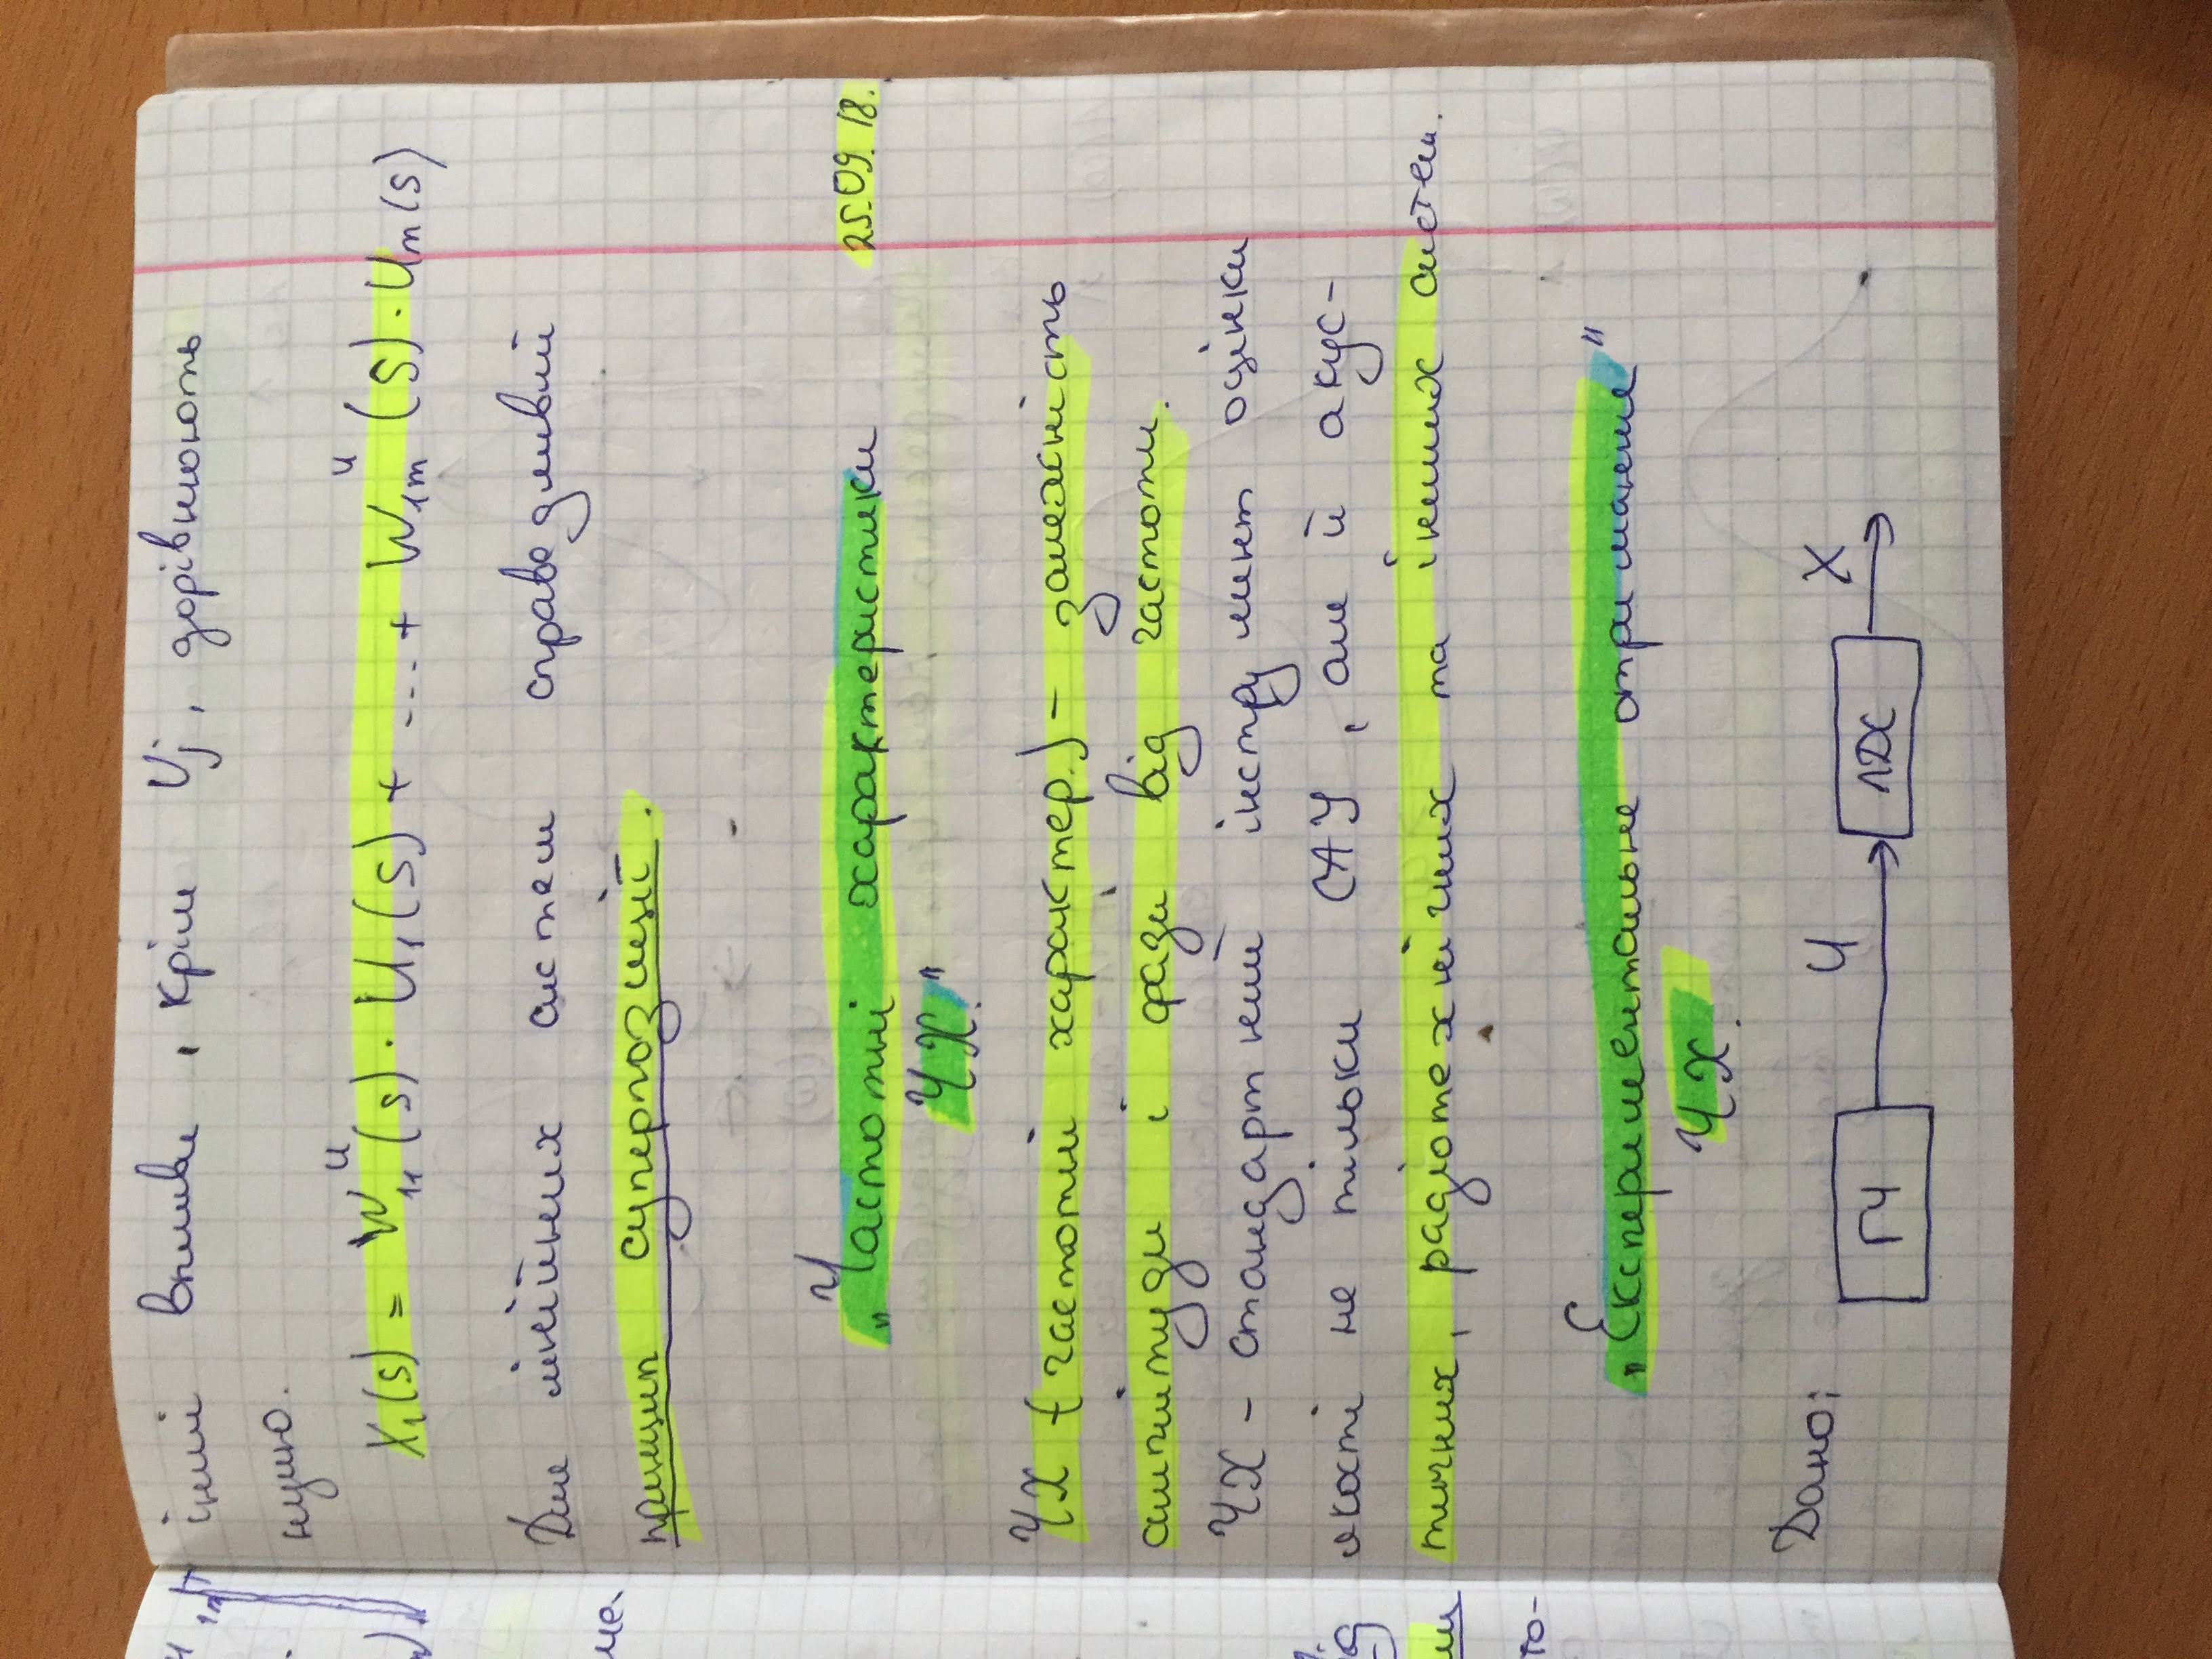 інші впливи, крім Uj, дорівнюють
нулю.
X₁(s) = W₁₁ᵘ(s) · U₁(s) + ... + W₁ₘᵘ(s) · Uₘ(s)
Для лінійних систем справедливий
принцип суперпозиції.
„Частотні характеристики
25.09.18.
ЧХ."
ЧХ (частотні характер.) – залежність
амплітуди і фази від частоти.
ЧХ – стандартний інструмент оцінки
якості не тільки САУ, але й акус-
тичних, радіотехнічних та інших систем.
„Експериментальне отримання"
ЧХ.
Дано:
ГЧ U ЛДС X